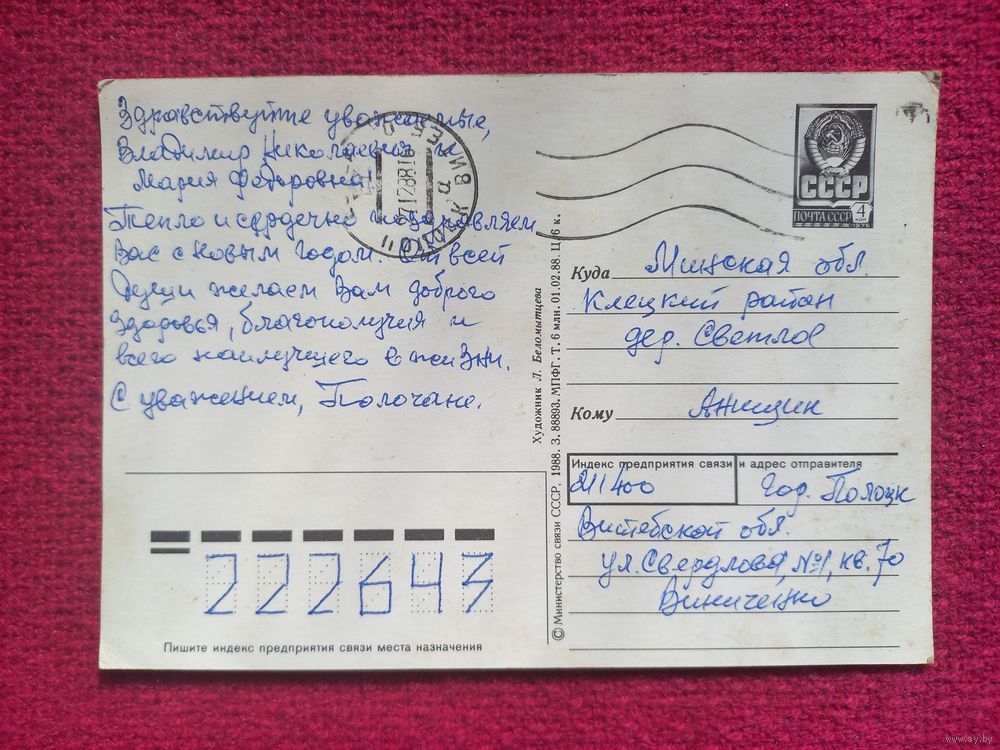 Здравствуйте уважаемые,
Владимир Николаевич и
Мария Федоровна!
Тепло и сердечно поздравляем
Вас с новым годом. От всей
души желаем Вам доброго
здоровья, благополучия и
всего наилучшего в жизни.
С уважением, Полочане.
27128816
СССР
ПОЧТА СССР
4
КОП
1976
Куда Минская обл.
Клецкий район
дер. Светлое
Кому Анищик
Индекс предприятия связи и адрес отправителя
211400 гор. Полоцк
Витебской обл.
ул. Свердлова, №1, кв. 70
Виниченко
222643
Пишите индекс предприятия связи места назначения
Художник Л. Беломытцева
© Министерство связи СССР. 1988. З. 88893. МПФГ. Т. 6 млн. 01.02.88. Ц. 6 к.
www.ay.by